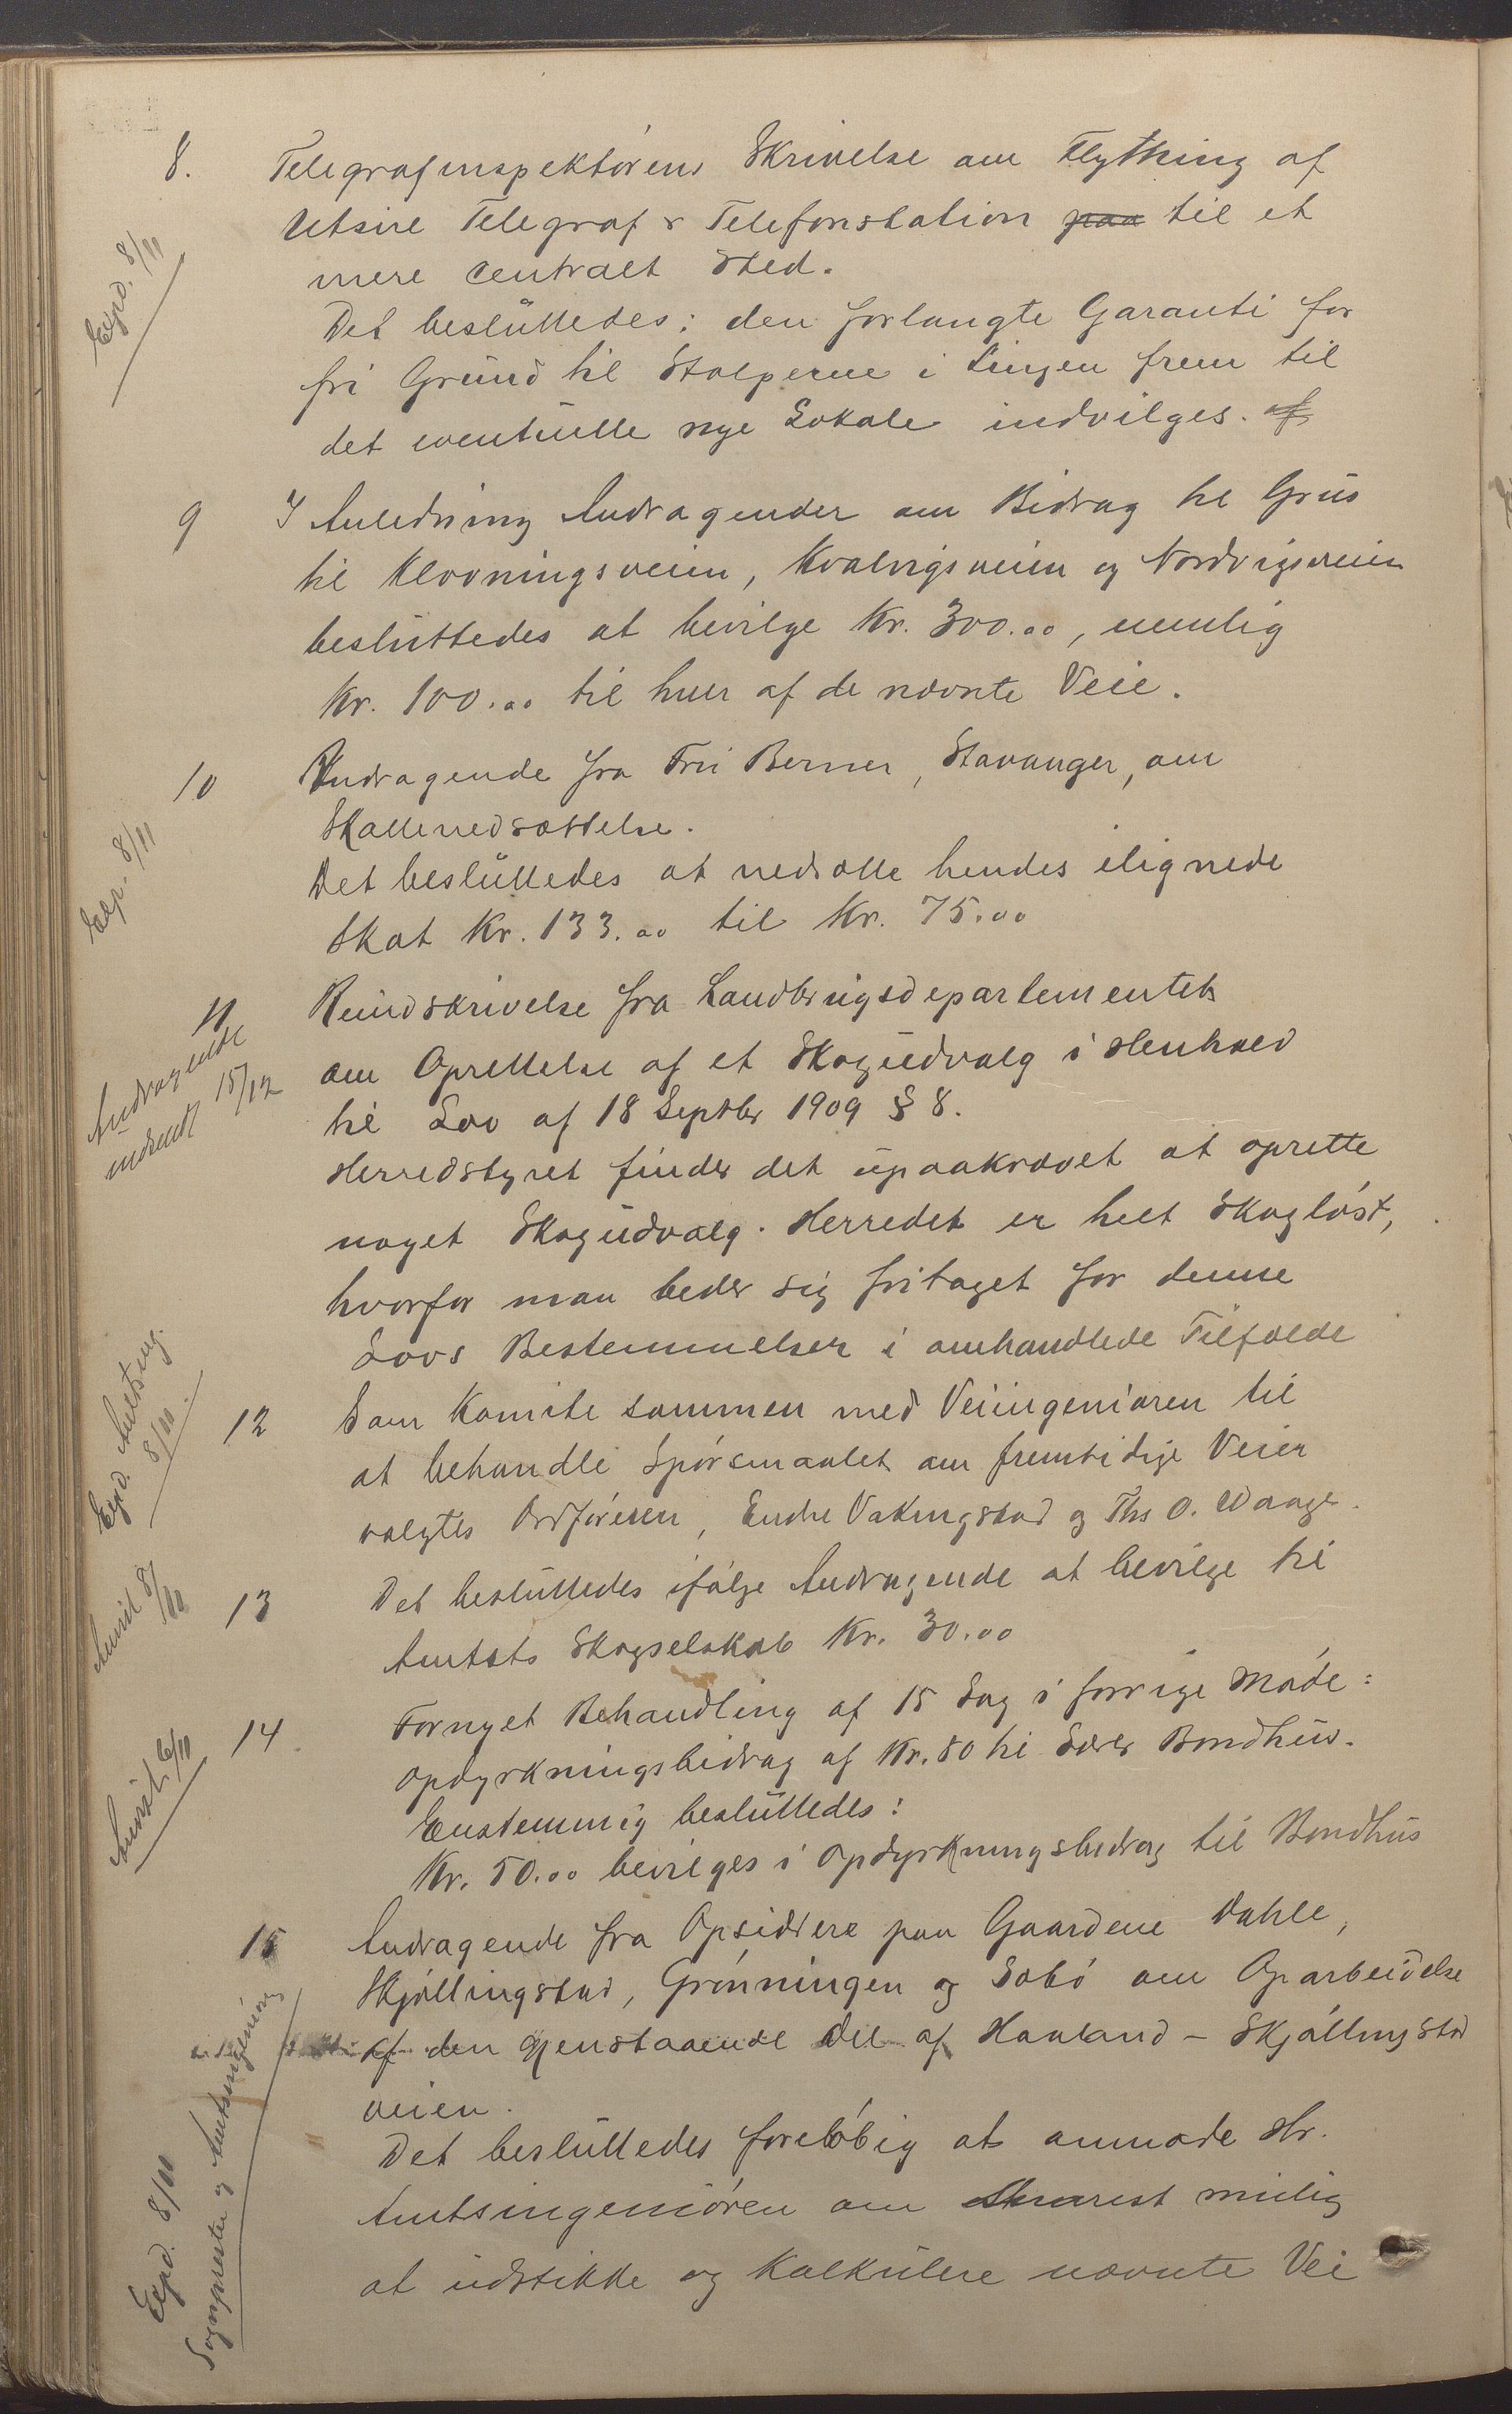 8. Telegrafinspektørens Skrivelse om Flytning af
Utsire Telegraf & Telefonstation paa til et
mere centralt Sted.
Expd. 8/11
Det besluttedes: den forlangte Garanti for
fri Grund til Stolperne i Linjen frem til
det eventuelle nye Lokale indvilges. af
9 I Anledning Andragender om Bidrag til Grus
til Klovningsveien, Kvalvigsveien og Nordvigsveien
besluttedes at bevilge Kr. 300.00, nemlig
Kr. 100.00 til hver af de nævnte Veie.
10 Andragende fra Fru Berner, Stavanger, om
Skattenedsættelse.
Exp. 8/11
Det besluttedes at nedsætte hendes ilignede
Skat Kr. 133.00 til Kr. 75.00
11 Rundskrivelse fra Landbrugsdepartementet
Andragende
indsendt 15/12
om Oprettelse af et Skogudvalg i Henhold
til Lov af 18 Septbr 1909 § 8.
Herredstyret finder det upaakrævet at oprette
noget Skogudvalg. Herredet er helt skogløst,
hvorfor man beder sig fritaget for denne
Lovs Bestemmelser i omhandlede Tilfælde
Expd. Amtsing.
8/11.
12 Som Komite sammen med Veiingeniøren til
at behandle Spørsmaalet om fremtidige Veier
valgtes Ordføreren, Endre Vakingstad og Ths O. Waage.
13 Det besluttedes ifølge Andragende at bevilge til
Amtets Skogselskab Kr. 30.00
Anvist 8/11
14 Fornyet Behandling af 15 Sag i forrige Møde:
Opdyrkningsbidrag af Kr. 80 til Bondhus.
Anvist 6/11
Enstemmig besluttedes:
Kr. 50.00 bevilges i Opdyrkningsbidrag til Bondhus
15 Andragende fra Opsiddere paa Gaardene Dahle,
Skjøllingstad, Grønningen og Sæbø om Oparbeidelse
af den gjenstaaende Del af Haaland - Skjøllingstad
veien.
Det besluttedes foreløbig at anmode Hr.
Amtsingeniøren om snarest mulig
at udstikke og kalkulere nævnte Vei
Expd. 8/11
Sogneprester og Amtsingeniør